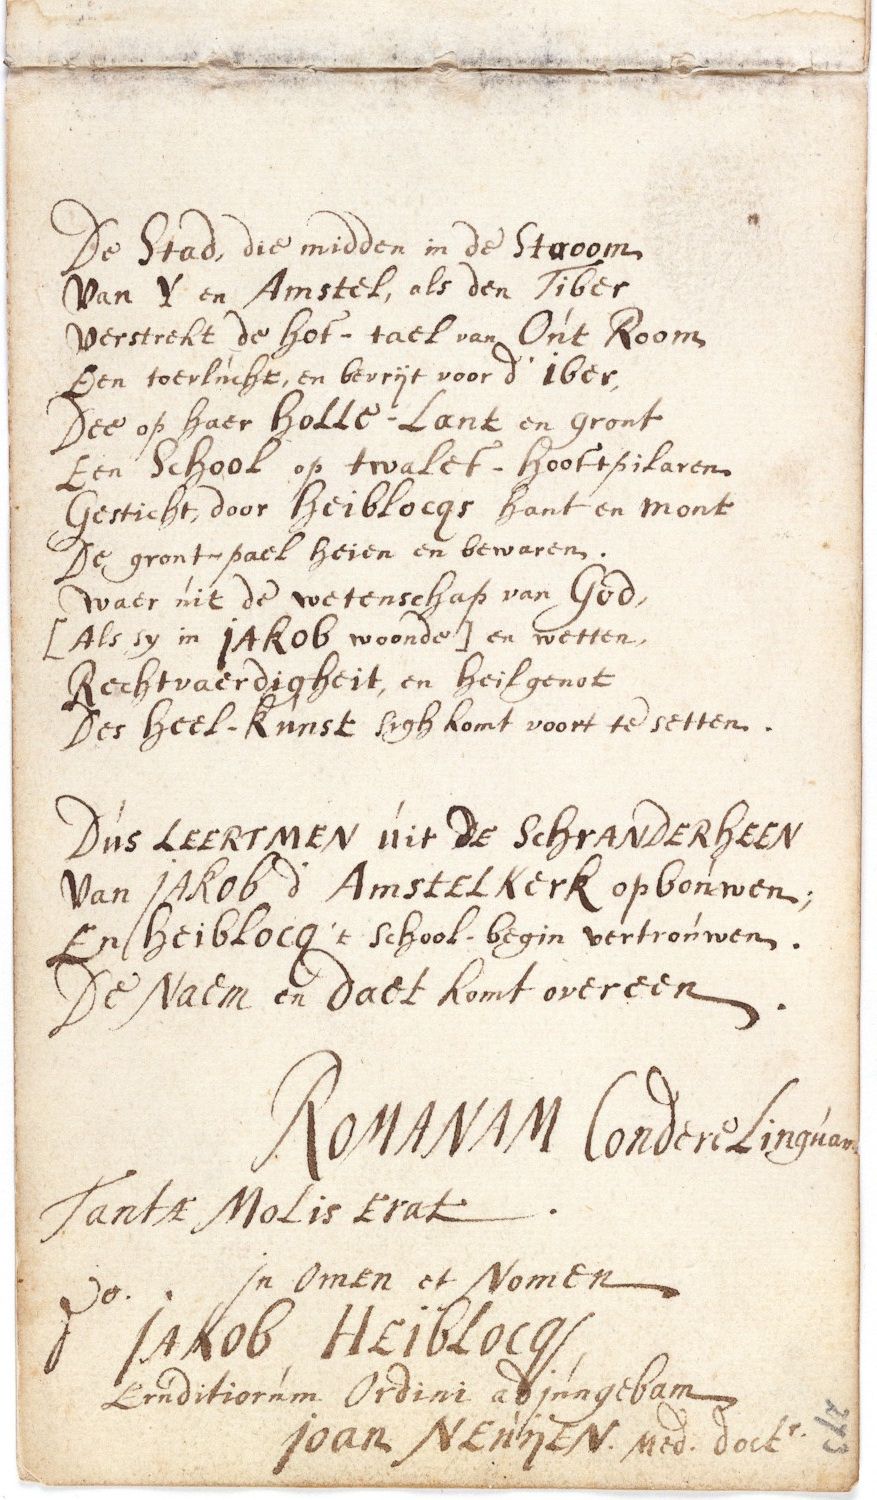 De Stad, die midden in de Stroom
Van Y en Amstel, als den Tiber
Verstrekt de hof-tael van Out Room
Een toevlucht, en bevrijt voor d' iber,
Dee op haer holle-Lant en gront
Een School op twalef-hooftpilaren
Gesticht, door Heiblocqs hant en mont
De gront-pael heien en bewaren.
waer uit de wetenschap van God,
[Als sy in JAKOB woonde] en wetten,
Rechtvaerdigheit, en heilgenot
Des heel-kunst sigh komt voort te setten.
Dus LEERTMEN uit de SchrANDERHEEN
Van JAKOB d' AmstELKerk opbouwen;
En heiblocq 't school-begin vertrouwen.
De Naem en daet komt overeen.
ROMANAM Condere Linguam
Tantæ Molis erat.
In Omen et Nomen
Do. JAKOB HEIBLOCQ
Eruditiorum Ordini adjungebam
Joan NEUYEN. Med. doctr.
273